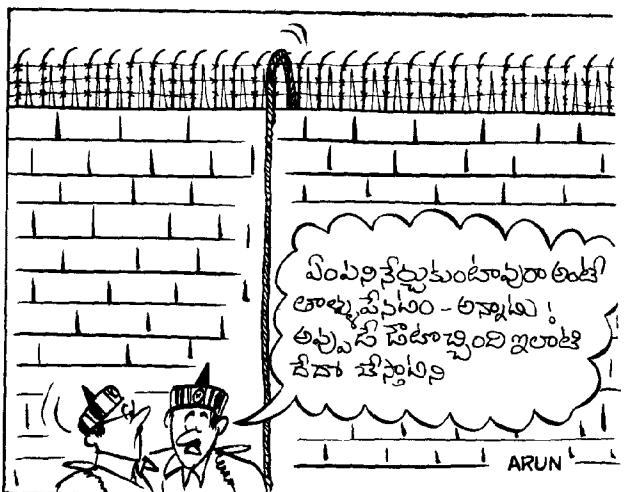 ఏంపనినేర్చుకుంటావురా అంటే
తాళ్ళుపేనటం - అన్నాడు !
అప్పుడే డౌటొచ్చింది ఇలాటి
దేదో చేస్తాడని
ARUN